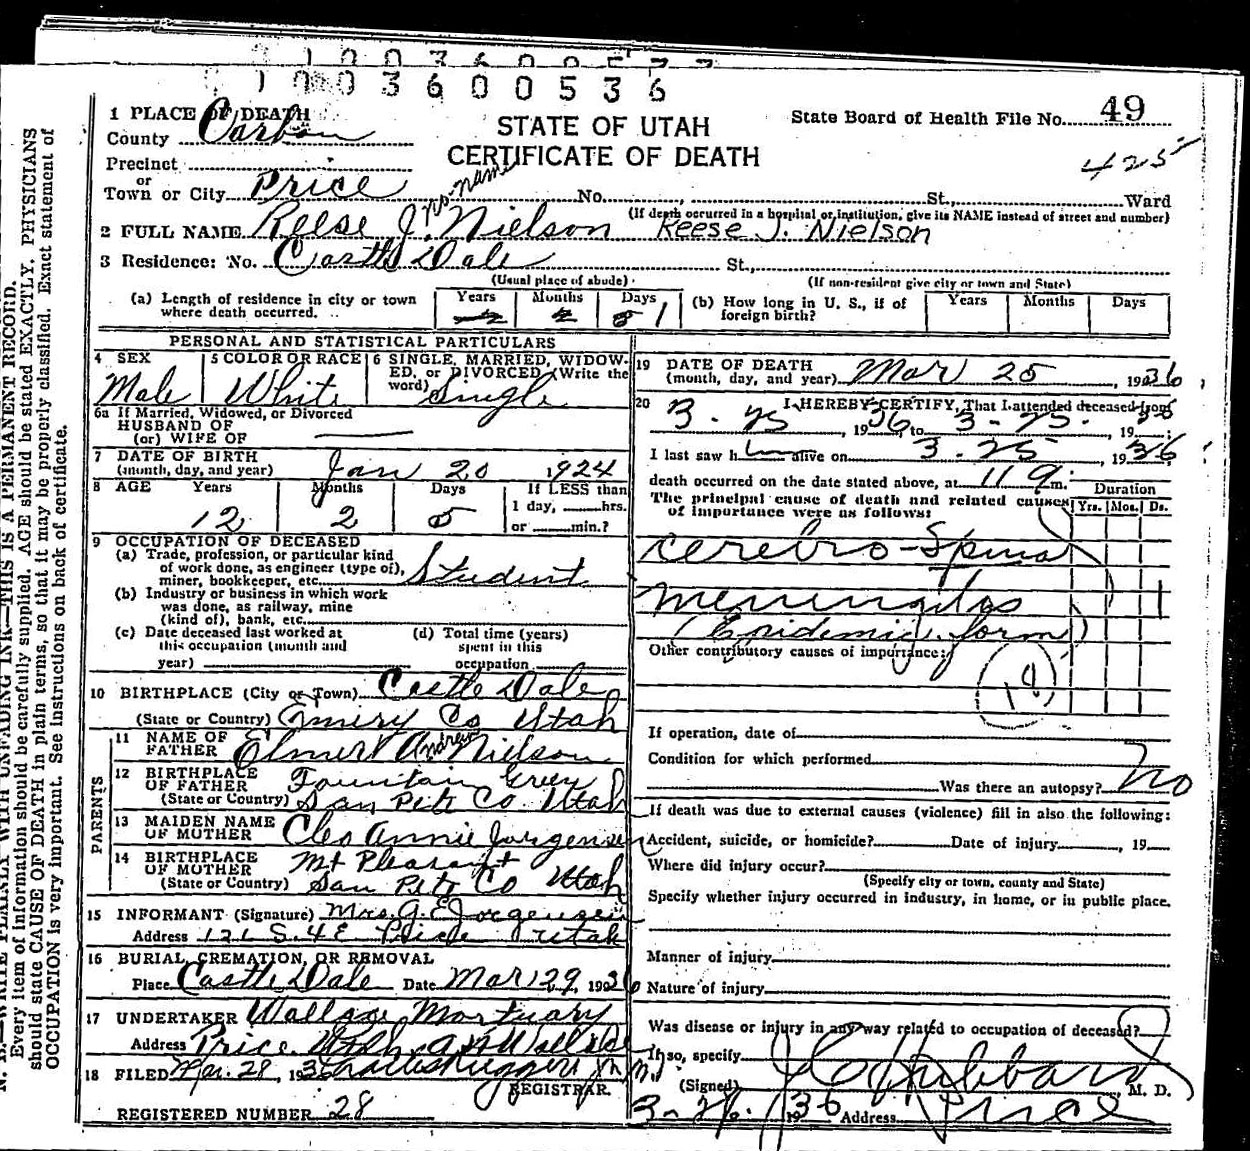 1003600577
1003600536
1 PLACE OF DEATH
County Carbon
STATE OF UTAH
CERTIFICATE OF DEATH
State Board of Health File No. 49
425
Precinct
or
Town or City Price No. St., Ward
no name
(If death occurred in a hospital or institution, give its NAME instead of street and number)
2 FULL NAME Reese J. Nielson Reese J. Nielson
3 Residence: No. Castle Dale St.,
(Usual place of abode) (If non-resident give city or town and State)
(a) Length of residence in city or town where death occurred. Years Months Days 1
(b) How long in U. S., if of foreign birth? Years Months Days
PERSONAL AND STATISTICAL PARTICULARS
4 SEX Male
5 COLOR OR RACE White
6 SINGLE, MARRIED, WIDOWED, or DIVORCED (Write the word) Single
6a If Married, Widowed, or Divorced
HUSBAND OF
(or) WIFE OF
7 DATE OF BIRTH
(month, day, and year) Jan 20 1924
8 AGE Years Months Days If LESS than
1 day, hrs.
12 2 5 or min.?
9 OCCUPATION OF DECEASED
(a) Trade, profession, or particular kind
of work done, as engineer (type of),
miner, bookkeeper, etc. Student
(b) Industry or business in which work
was done, as railway, mine
(kind of), bank, etc.
(c) Date deceased last worked at this occupation (month and year)
(d) Total time (years) spent in this occupation
10 BIRTHPLACE (City or Town) Castle Dale
(State or Country) Emery Co Utah
PARENTS
11 NAME OF FATHER Elmer Andrew Nielson
12 BIRTHPLACE OF FATHER Fountain Green
(State or Country) San Pete Co Utah
13 MAIDEN NAME OF MOTHER Cleo Annie Jorgensen
14 BIRTHPLACE OF MOTHER Mt Pleasant
(State or Country) San Pete Co Utah
15 INFORMANT (Signature) Mrs. G. E. Jorgensen
Address 121 S. 4 E Price Utah
16 BURIAL, CREMATION, OR REMOVAL
Place Castle Dale Date Mar 29, 1936
17 UNDERTAKER Wallace Mortuary
Address Price, Utah
18 FILED Mar. 28, 1936
REGISTRAR.
REGISTERED NUMBER 28
19 DATE OF DEATH
(month, day, and year) Mar 25, 1936
20 I HEREBY CERTIFY, That I attended deceased from
3-25, 1936, to 3-25-, 1936;
I last saw him alive on 3-25, 1936
death occurred on the date stated above, at 11 9 m.
The principal cause of death and related causes
of importance were as follows:
Duration
Yrs. Mos. Ds.
Cerebro-Spinal
Meningitis 1
(Epidemic form)
Other contributory causes of importance:
If operation, date of
Condition for which performed
Was there an autopsy? No
If death was due to external causes (violence) fill in also the following:
Accident, suicide, or homicide? Date of injury, 19
Where did injury occur?
(Specify city or town, county and State)
Specify whether injury occurred in industry, in home, or in public place.
Manner of injury
Nature of injury
Was disease or injury in any way related to occupation of deceased?
If so, specify
(Signed) Hubbard, M. D.
3-26, 1936 Address Price
N. B.—WRITE PLAINLY WITH UNFADING INK—THIS IS A PERMANENT RECORD.
Every item of information should be carefully supplied. AGE should be stated EXACTLY. PHYSICIANS
should state CAUSE OF DEATH in plain terms, so that it may be properly classified. Exact statement of
OCCUPATION is very important. See instructions on back of certificate.